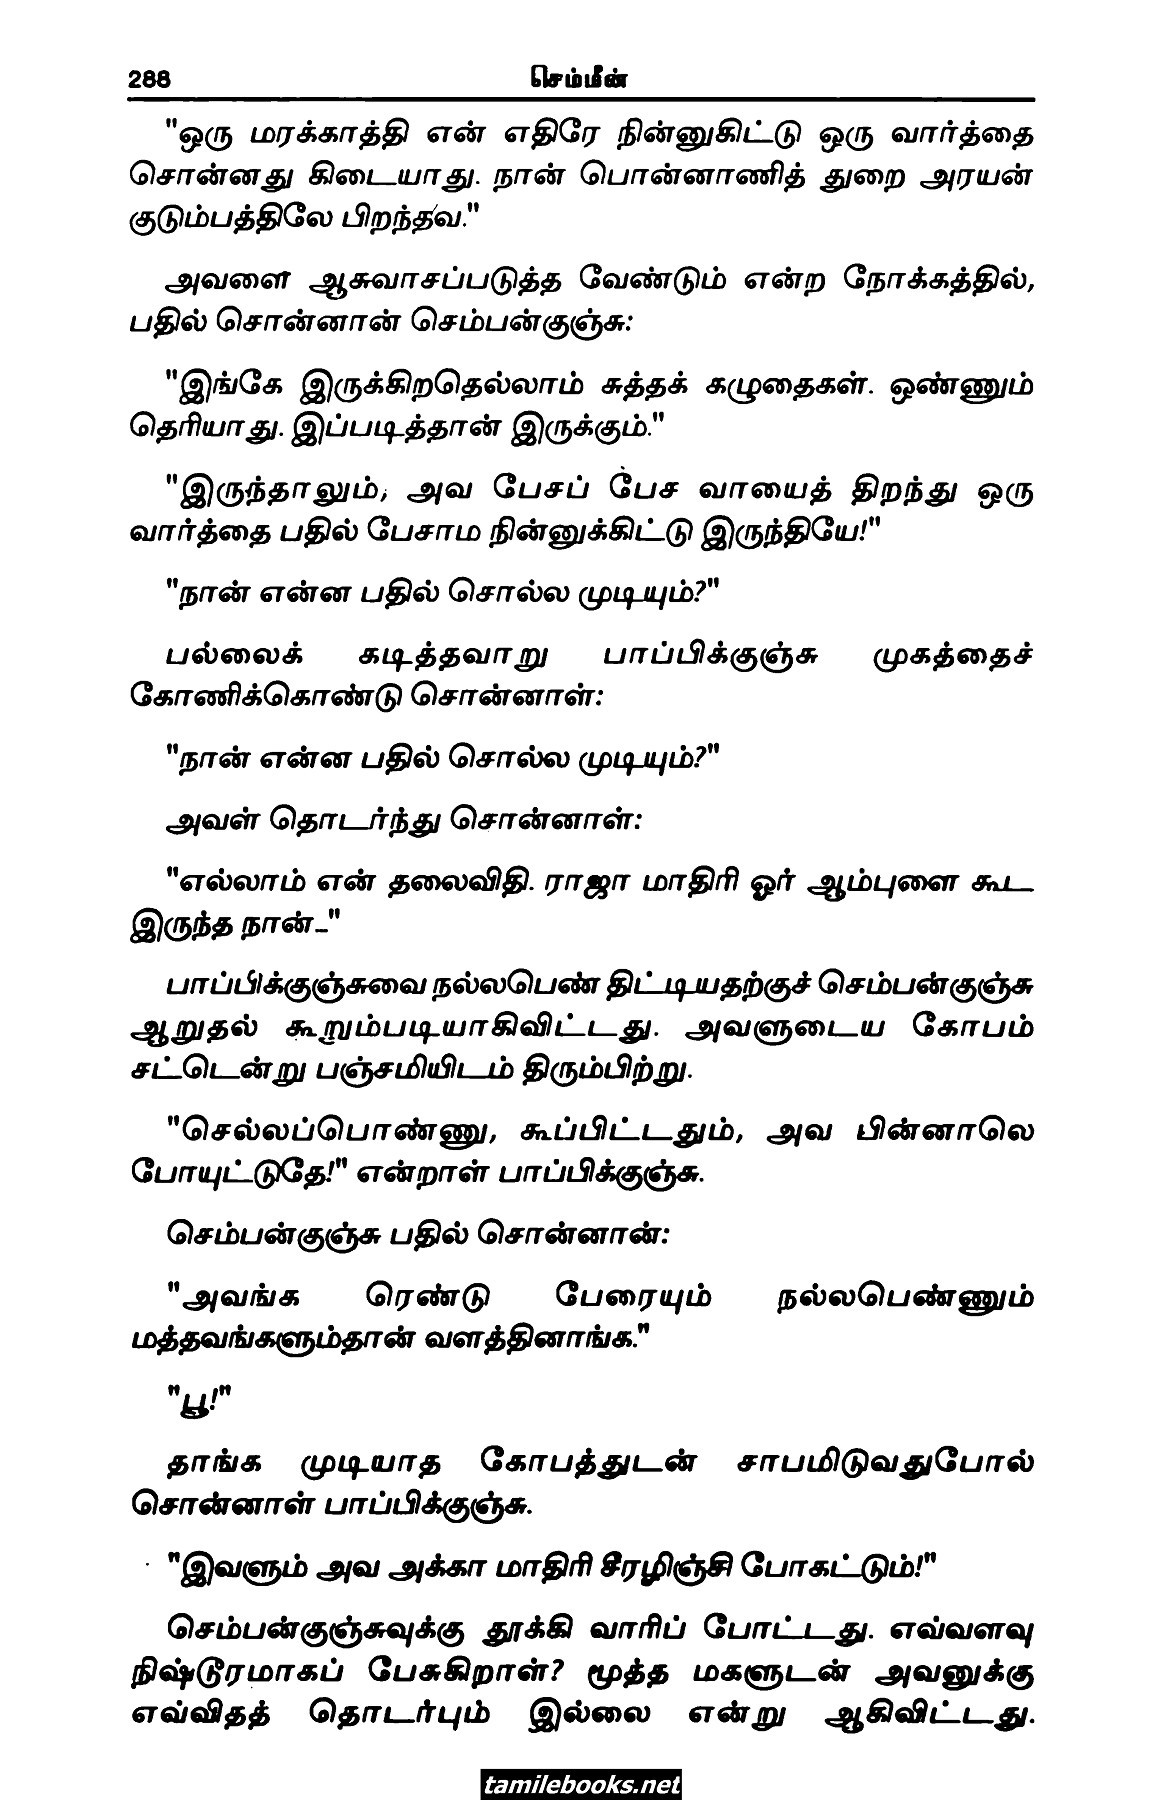 288
செம்மீன்
"ஒரு மரக்காத்தி என் எதிரே நின்னுகிட்டு ஒரு வார்த்தை
சொன்னது கிடையாது. நான் பொன்னாணித் துறை அரயன்
குடும்பத்திலே பிறந்தவ."
அவளை ஆசுவாசப்படுத்த வேண்டும் என்ற நோக்கத்தில்,
பதில் சொன்னான் செம்பன்குஞ்சு:
"இங்கே இருக்கிறதெல்லாம் சுத்தக் கழுதைகள். ஒண்ணும்
தெரியாது. இப்படித்தான் இருக்கும்."
"இருந்தாலும், அவ பேசப் பேச வாயைத் திறந்து ஒரு
வார்த்தை பதில் பேசாம நின்னுக்கிட்டு இருந்தியே!"
"நான் என்ன பதில் சொல்ல முடியும்?"
பல்லைக் கடித்தவாறு பாப்பிக்குஞ்சு முகத்தைச்
கோணிக்கொண்டு சொன்னாள்:
"நான் என்ன பதில் சொல்ல முடியும்?"
அவள் தொடர்ந்து சொன்னாள்:
"எல்லாம் என் தலைவிதி. ராஜா மாதிரி ஓர் ஆம்புளை கூட
இருந்த நான்_"
பாப்பிக்குஞ்சுவை நல்லபெண் திட்டியதற்குச் செம்பன்குஞ்சு
ஆறுதல் கூறும்படியாகிவிட்டது. அவளுடைய கோபம்
சட்டென்று பஞ்சமியிடம் திரும்பிற்று.
"செல்லப்பொண்ணு, கூப்பிட்டதும், அவ பின்னாலெ
போயுட்டுதே!" என்றாள் பாப்பிக்குஞ்சு.
செம்பன்குஞ்சு பதில் சொன்னான்:
"அவங்க ரெண்டு பேரையும் நல்லபெண்ணும்
மத்தவங்களும்தான் வளத்தினாங்க."
"பூ!"
தாங்க முடியாத கோபத்துடன் சாபமிடுவதுபோல்
சொன்னாள் பாப்பிக்குஞ்சு.
"இவளும் அவ அக்கா மாதிரி சீரழிஞ்சி போகட்டும்!"
செம்பன்குஞ்சுவுக்கு தூக்கி வாரிப் போட்டது. எவ்வளவு
நிஷ்டூரமாகப் பேசுகிறாள்? மூத்த மகளுடன் அவனுக்கு
எவ்விதத் தொடர்பும் இல்லை என்று ஆகிவிட்டது.
tamilebooks.net